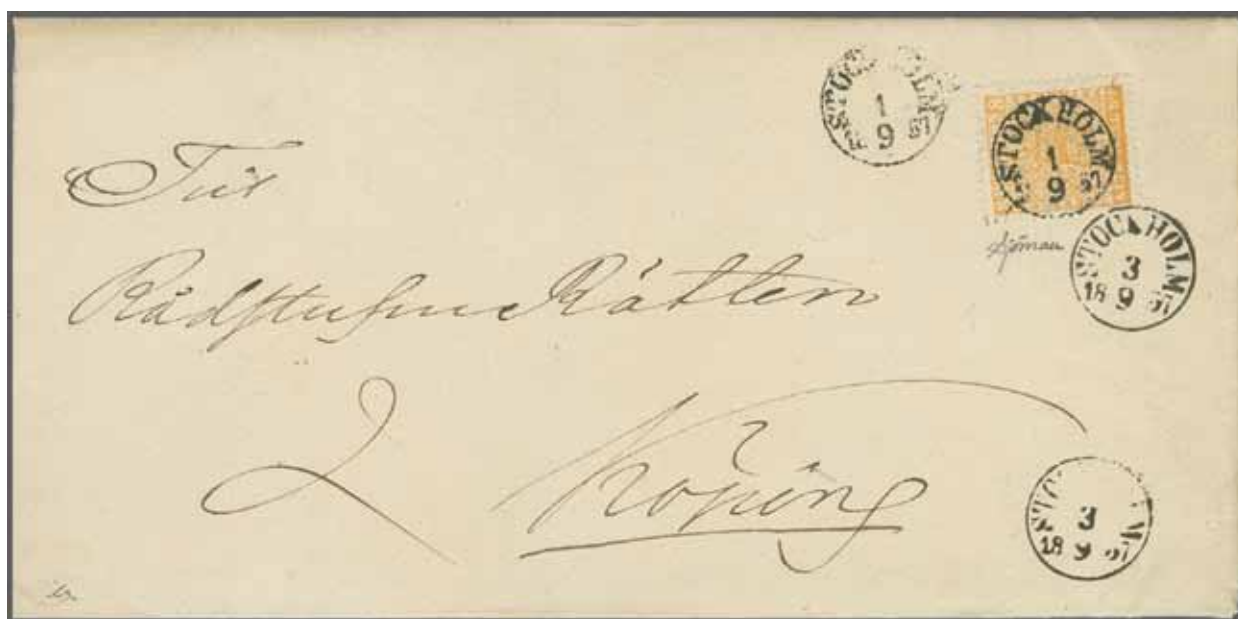 STOCKHOLM
1
9 57
STOCKHOLM
1
9 57
Sjöman
STOCKHOLM
3
18 9 57
Till
RådstufuRätten
Köping
STOCKHOLM
3
18 9 57